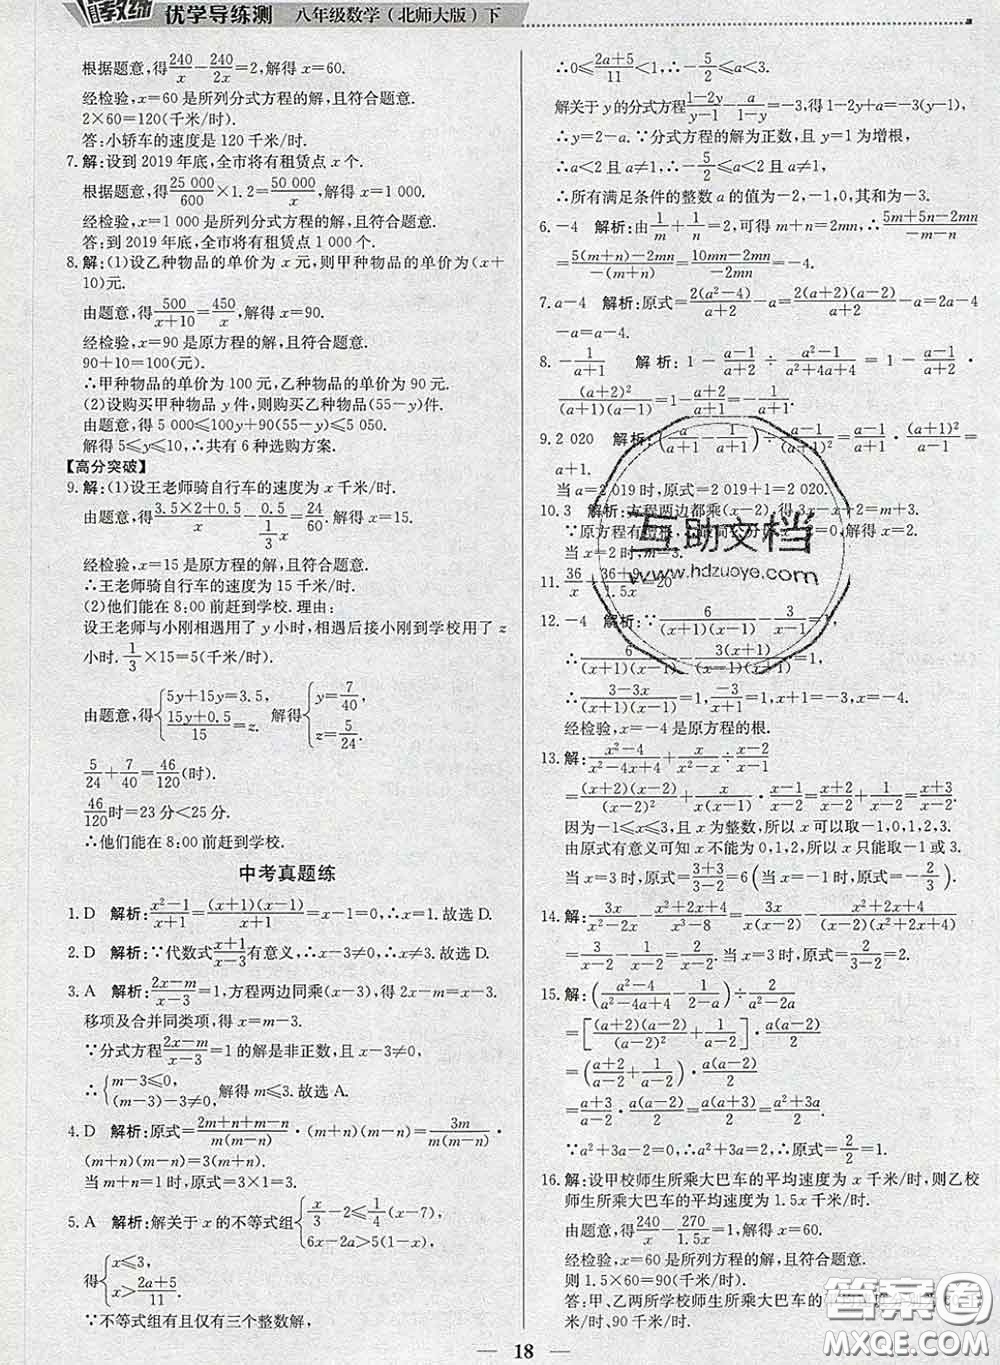 优学导练测 八年级数学(北师大版)下
根据题意,得240/x-240/2x=2,解得 x=60.
经检验,x=60是所列分式方程的解,且符合题意.
2×60=120(千米/时).
答:小轿车的速度是120千米/时.
7.解:设到2019年底,全市将有租赁点 x 个.
根据题意,得25 000/600×1.2=50 000/x,解得 x=1 000.
经检验,x=1 000是所列分式方程的解,且符合题意.
答:到2019年底,全市将有租赁点1 000个.
8.解:(1)设乙种物品的单价为 x 元,则甲种物品的单价为(x+
10)元.
由题意,得500/(x+10)=450/x,解得 x=90.
经检验,x=90是原方程的解,且符合题意.
90+10=100(元).
∴甲种物品的单价为100元,乙种物品的单价为90元.
(2)设购买甲种物品 y 件,则购买乙种物品(55-y)件.
由题意,得5 000≤100y+90(55-y)≤5 050.
解得5≤y≤10.∴共有6种选购方案.
【高分突破】
9.解:(1)设王老师骑自行车的速度为 x 千米/时.
由题意,得(3.5×2+0.5)/x-0.5/(1/3 x)=24/60.解得 x=15.
经检验,x=15是原方程的解,且符合题意.
∴王老师骑自行车的速度为15千米/时.
(2)他们能在8:00前赶到学校.理由:
设王老师与小刚相遇用了 y 小时,相遇后接小刚到学校用了 z
小时.1/3×15=5(千米/时).
由题意,得{5y+15y=3.5, (15y+0.5)/15=z. 解得{y=7/40, z=5/24.
5/24+7/40=46/120(时).
46/120时=23分<25分.
∴他们能在8:00前赶到学校.
中考真题练
1.D 解析:(x²-1)/(x+1)=(x+1)(x-1)/(x+1)=x-1=0,∴x=1.故选D.
2.D 解析:∵代数式(x+1)/(x-3)有意义,∴x-3≠0.∴x≠3.故选D.
3.A 解析:(2x-m)/(x-3)=1,方程两边同乘(x-3),得2x-m=x-3.
移项及合并同类项,得 x=m-3.
∵分式方程(2x-m)/(x-3)=1的解是非正数,且 x-3≠0,
∴{m-3≤0, (m-3)-3≠0. 解得 m≤3.故选A.
4.D 解析:原式=(2m+n+m-n)/m(m-n)·(m+n)(m-n)=3m/m(m-n)·
(m+n)(m-n)=3(m+n).
当 m+n=1时,原式=3×1=3.
5.A 解析:解关于 x 的不等式组{x/3-2≤1/4(x-7), 6x-2a>5(1-x),
得{x≤3, x>(2a+5)/11.
∵不等式组有且仅有三个整数解,
∴0≤(2a+5)/11<1,∴-5/2≤a<3.
解关于 y 的分式方程(1-2y)/(y-1)-a/(1-y)=-3,得1-2y+a=-3(y-1),
∴y=2-a.∵分式方程的解为正数,且 y=1为增根,
∴a<2且 a≠1,∴-5/2≤a<2且 a≠1.
∴所有满足条件的整数 a 的值为-2,-1,0,其和为-3.
6.-4 解析:由1/m+1/n=2,可得 m+n=2mn,∴(5m+5n-2mn)/(-m-n)
=(5(m+n)-2mn)/(-(m+n))=(10mn-2mn)/(-2mn)=-4.
7.a-4 解析:原式=2(a²-4)/(a+2)-a=2(a+2)(a-2)/(a+2)-a=2a-4
-a=a-4.
8.-1/(a+1) 解析:1-(a-1)/(a+2)÷(a²-1)/(a²+4a+4)=1-(a-1)/(a+2)·
(a+2)²/(a+1)(a-1)=1-(a+2)/(a+1)=-1/(a+1).
9.2 020 解析:(a/(a+1)-1/(a+1))÷(a-1)/(a+1)²=(a-1)/(a+1)·(a+1)²/(a-1)=
a+1.
当 a=2 019时,原式=2 019+1=2 020.
10.3 解析:方程两边都乘(x-2),得3x-x+2=m+3.
∵原方程有增根,∴最简公分母(x-2)=0,
当 x=2时,m=3.
11.36/x-(36+9)/1.5x=20
12.-4 解析:∵6/(x+1)(x-1)-3/(x-1)=1,
∴6/(x+1)(x-1)-3(x+1)/(x+1)(x-1)=1,
∴(3-3x)/(x+1)(x-1)=1,-3/(x+1)=1,x+1=-3,x=-4.
经检验,x=-4是原方程的根.
13.解:(x²-4)/(x²-4x+4)+x/(x²-x)÷(x-2)/(x-1)
=(x+2)(x-2)/(x-2)²+x/x(x-1)·(x-1)/(x-2)=(x+2)/(x-2)+1/(x-2)=(x+3)/(x-2).
因为-1≤x≤3,且 x 为整数,所以 x 可以取-1,0,1,2,3.
由原式有意义可知 x 不能为0,1,2,所以 x 只能取-1或3.
当 x=3时,原式=(3+3)/(3-2)=6(当 x=-1时,原式=-2/3).
14.解:3x/(x²-2x)-(x²+2x+4)/(x³-8)=3x/x(x-2)-(x²+2x+4)/(x-2)(x²+2x+4)
=3/(x-2)-1/(x-2)=2/(x-2).当 x=3时,原式=2/(3-2)=2.
15.解:((a²-4)/(a²-4a+4)-1/(2-a))÷2/(a²-2a)
=[(a+2)(a-2)/(a-2)²+1/(a-2)]·a(a-2)/2
=((a+2)/(a-2)+1/(a-2))·a(a-2)/2
=(a+3)/(a-2)·a(a-2)/2=a(a+3)/2=(a²+3a)/2.
∵a²+3a-2=0,∴a²+3a=2,∴原式=2/2=1.
16.解:设甲校师生所乘大巴车的平均速度为 x 千米/时,则乙校
师生所乘大巴车的平均速度为1.5x千米/时.
由题意,得240/x-270/1.5x=1.解得 x=60.
经检验,x=60是所列方程的解,且符合题意.
则1.5×60=90(千米/时).
答:甲、乙两所学校师生所乘大巴车的
时、90千米/时.
互助文档
www.hdzuoye.com
答案圈
MXQE.COM
18